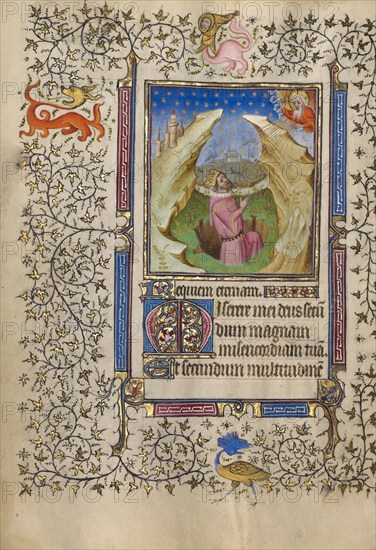 Requiem eternam.
Miserere mei deus secũ
dum magnam
misericordiam tuã.
Et secundum multitudinẽ